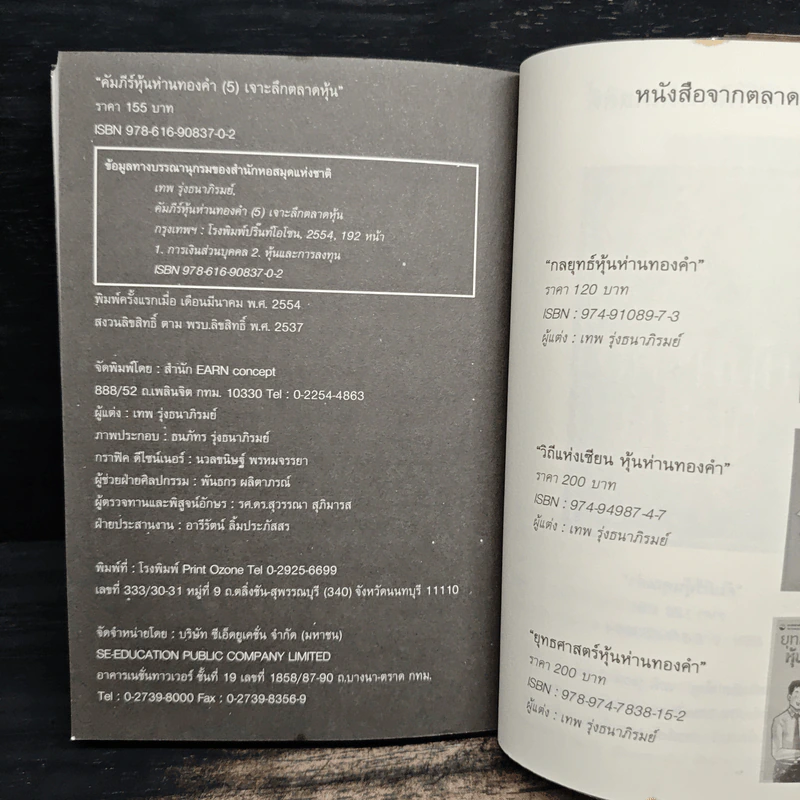 "คัมภีร์หุ้นห่านทองคำ (5) เจาะลึกตลาดหุ้น"
ราคา 155 บาท
ISBN 978-616-90837-0-2
ข้อมูลทางบรรณานุกรมของสำนักหอสมุดแห่งชาติ
เทพ รุ่งธนาภิรมย์.
คัมภีร์หุ้นห่านทองคำ (5) เจาะลึกตลาดหุ้น
กรุงเทพฯ : โรงพิมพ์ปริ๊นท์โอโซน, 2554, 192 หน้า
1. การเงินส่วนบุคคล 2. หุ้นและการลงทุน
ISBN 978-616-90837-0-2
พิมพ์ครั้งแรกเมื่อ เดือนมีนาคม พ.ศ. 2554
สงวนลิขสิทธิ์ ตาม พรบ.ลิขสิทธิ์ พ.ศ. 2537
จัดพิมพ์โดย : สำนัก EARN concept
888/52 ถ.เพลินจิต กทม. 10330 Tel : 0-2254-4863
ผู้แต่ง : เทพ รุ่งธนาภิรมย์
ภาพประกอบ : ธนภัทร รุ่งธนาภิรมย์
กราฟิค ดีไซน์เนอร์ : นวลขนิษฐ์ พรหมจรรยา
ผู้ช่วยฝ่ายศิลปกรรม : พันธกร ผลิตาภรณ์
ผู้ตรวจทานและพิสูจน์อักษร : รศ.ดร.สุวรรณา สุภิมารส
ฝ่ายประสานงาน : อารีรัตน์ ลิ้มประภัสสร
พิมพ์ที่ : โรงพิมพ์ Print Ozone Tel 0-2925-6699
เลขที่ 333/30-31 หมู่ที่ 9 ถ.ตลิ่งชัน-สุพรรณบุรี (340) จังหวัดนนทบุรี 11110
จัดจำหน่ายโดย : บริษัท ซีเอ็ดยูเคชั่น จำกัด (มหาชน)
SE-EDUCATION PUBLIC COMPANY LIMITED
อาคารเนชั่นทาวเวอร์ ชั้นที่ 19 เลขที่ 1858/87-90 ถ.บางนา-ตราด กทม.
Tel : 0-2739-8000 Fax : 0-2739-8356-9
หนังสือจากตลาด
"กลยุทธ์หุ้นห่านทองคำ"
ราคา 120 บาท
ISBN : 974-91089-7-3
ผู้แต่ง : เทพ รุ่งธนาภิรมย์
"วิถีแห่งเซียน หุ้นห่านทองคำ"
ราคา 200 บาท
ISBN : 974-94987-4-7
ผู้แต่ง : เทพ รุ่งธนาภิรมย์
"ยุทธศาสตร์หุ้นห่านทองคำ"
ราคา 200 บาท
ISBN : 978-974-7838-15-2
ผู้แต่ง : เทพ รุ่งธนาภิรมย์